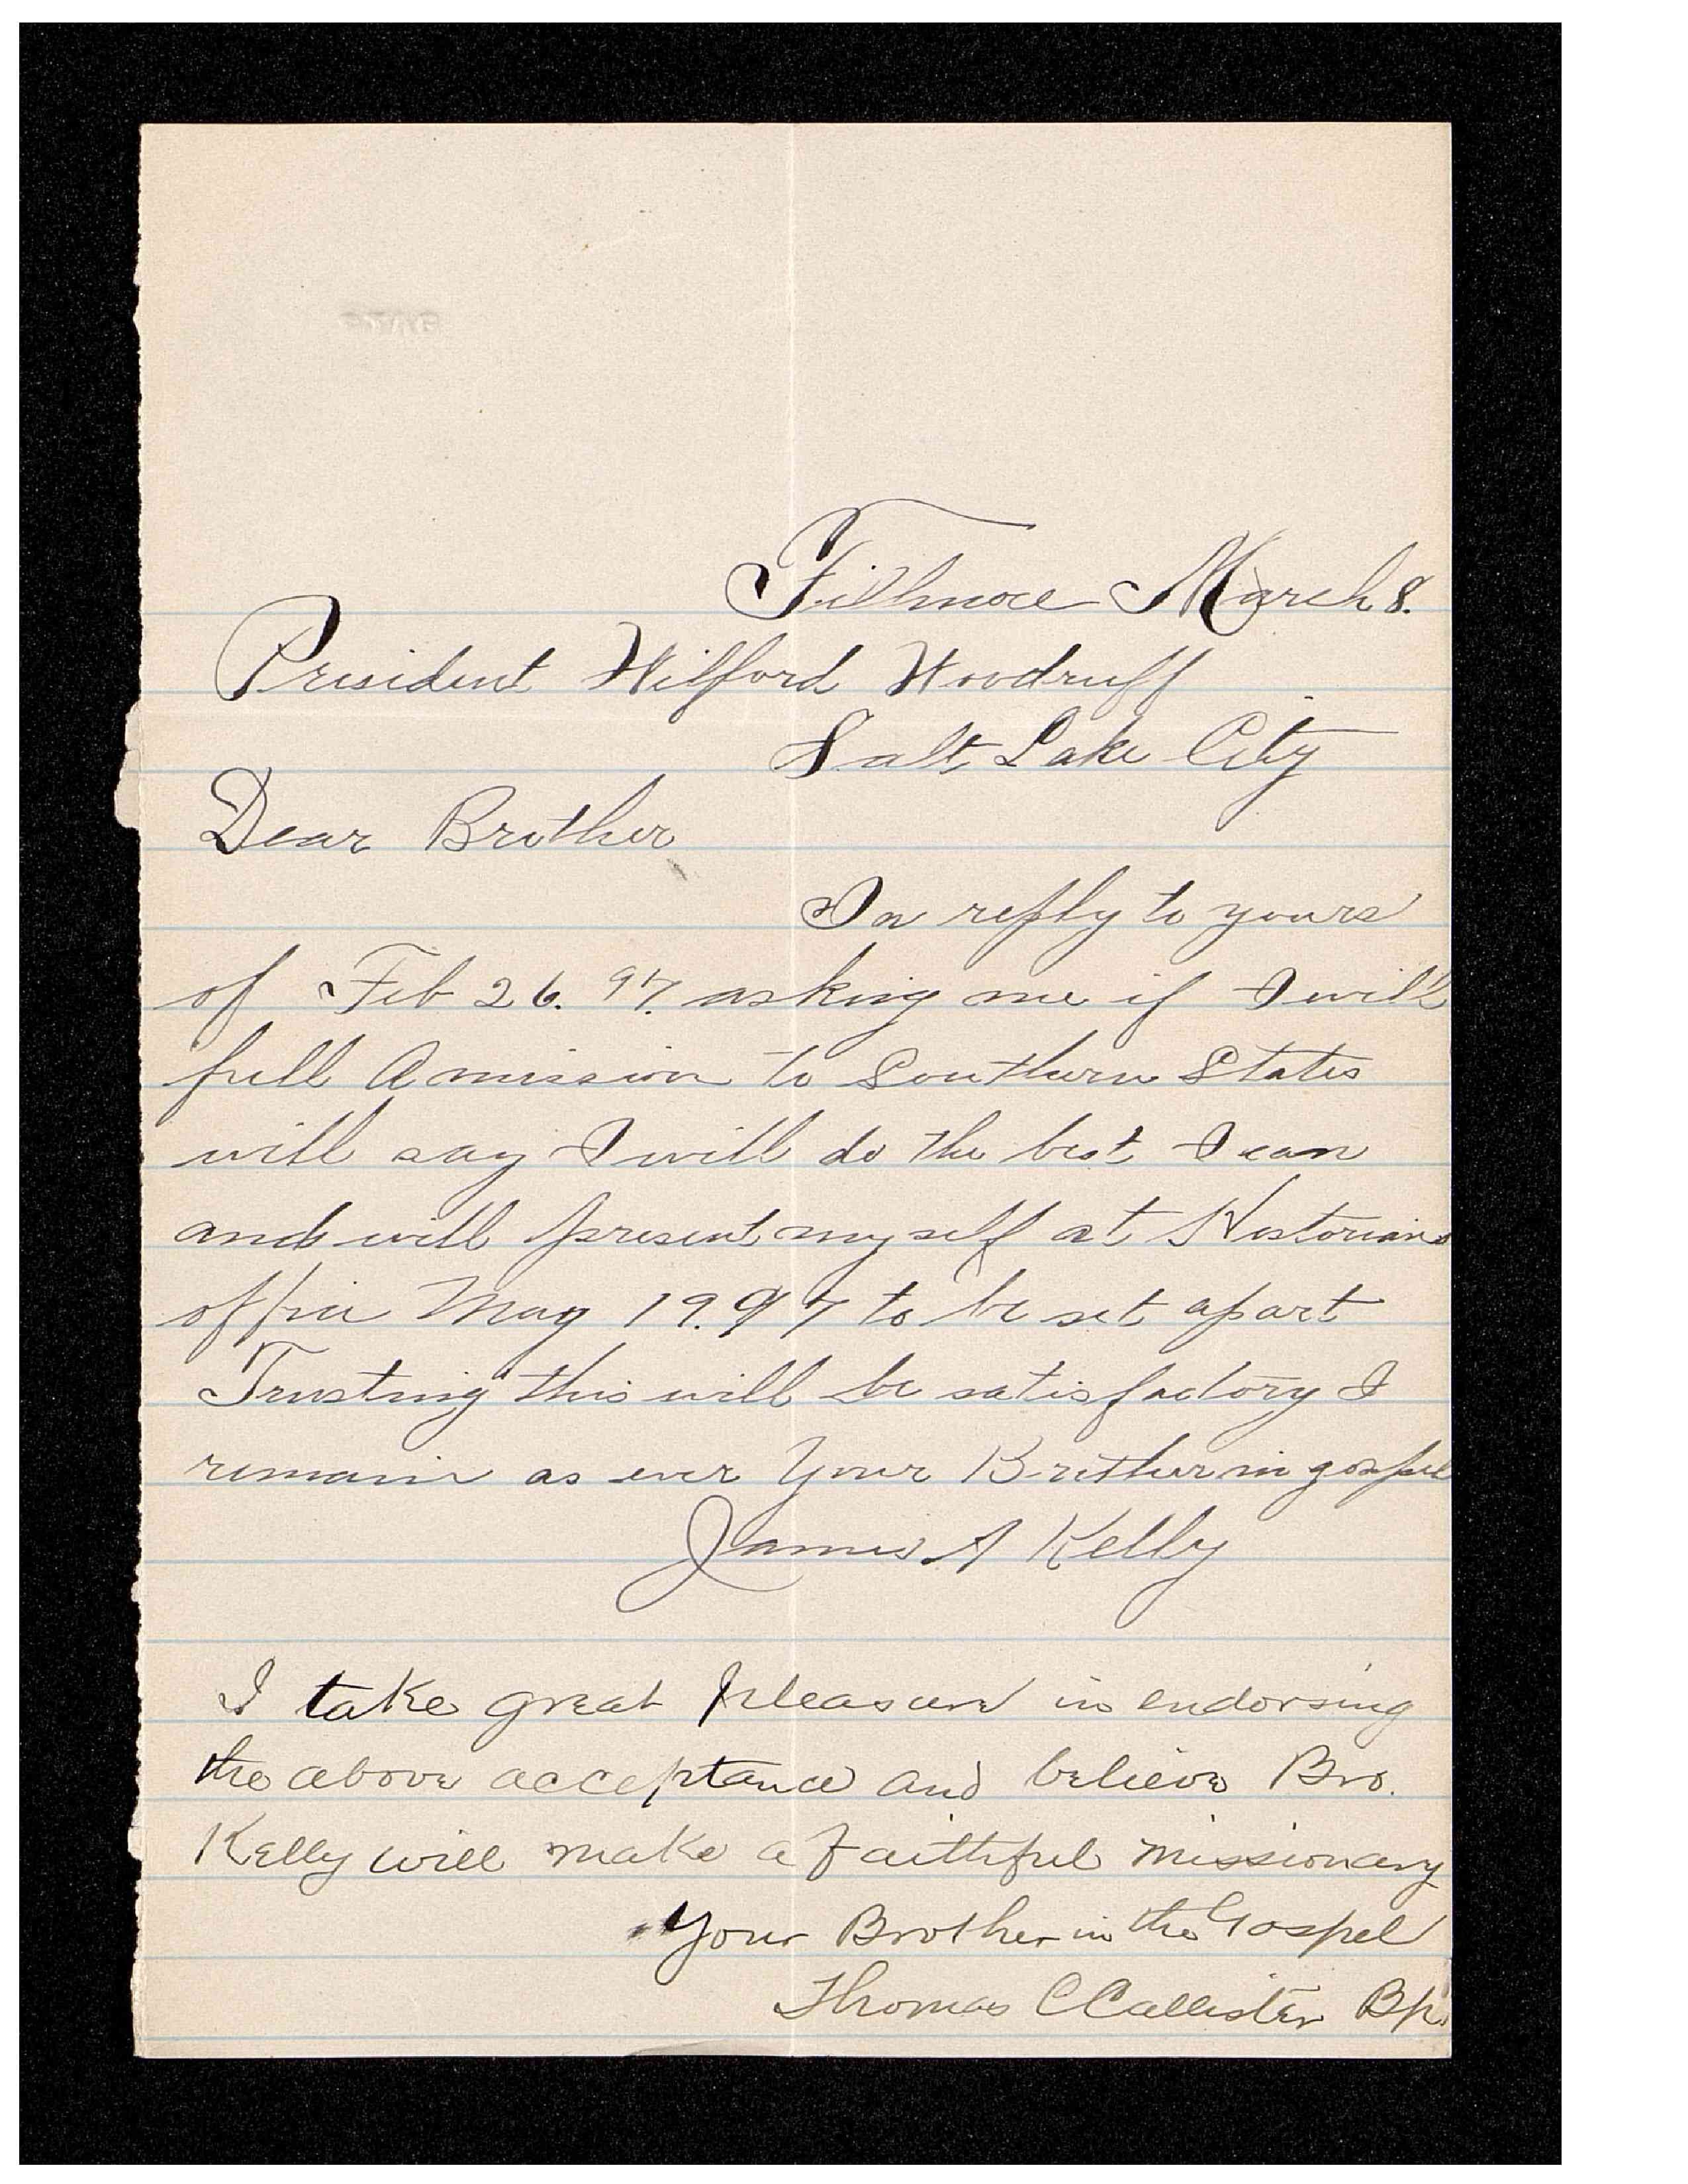 Fillmore March 8.
President Wilford Woodruff
Salt Lake City
Dear Brother
In reply to yours
of Feb 26. 97. asking me if I will
fill A mission to Southern States
will say I will do the best I can
and will present myself at Historians
office May 19. 97 to be set apart
Trusting this will be satisfactory I
remain as ever Your Brother in gospel
James A Kelly
I take great pleasure in endorsing
the above acceptance and believe Bro.
Kelly will make a faithful missionary
Your Brother in the Gospel
Thomas C Callister Bp.